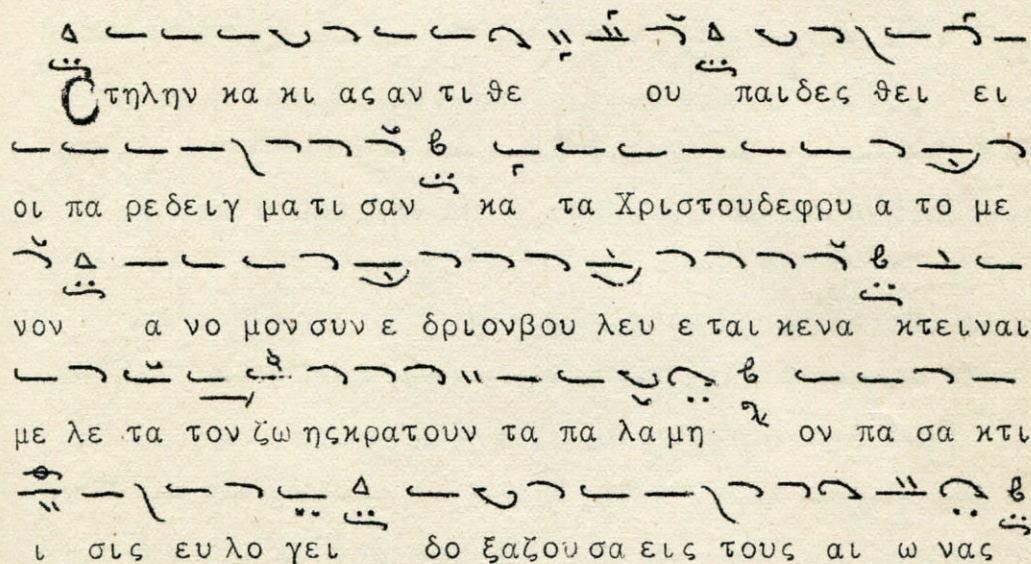 Στηλην κα κι ας αν τι θε ου παιδες θει ει
οι πα ρεδειγ μα τι σαν κα τα Χριστουδεφρυ α το με
νον α νο μον συν ε δριονβου λευ ε ται κενα κτειναι
με λε τα τον ζω ηςκρατουν τα πα λα μη ον πα σα κτι
ι σις ευ λο γει δο ξαζου σα εις τους αι ω νας